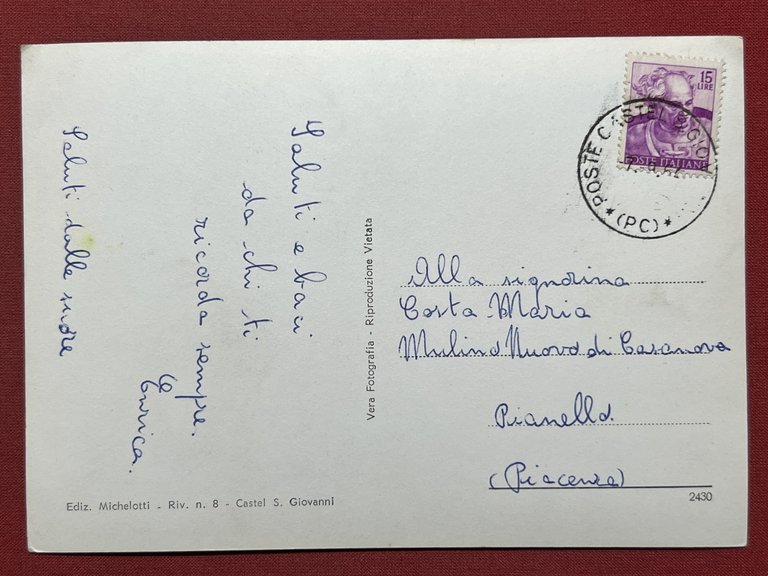 Saluti e baci
da chi ti
ricorda sempre.
Enrica.
Saluti dalle suore
Vera Fotografia - Riproduzione Vietata
15
LIRE
POSTE ITALIANE
POSTE CASTEL S. GIOV
(PC)
Alla signorina
Costa Maria
Mulino Nuovo di Casanova
Pianello.
(Piacenza)
Ediz. Michelotti - Riv. n. 8 - Castel S. Giovanni
2430